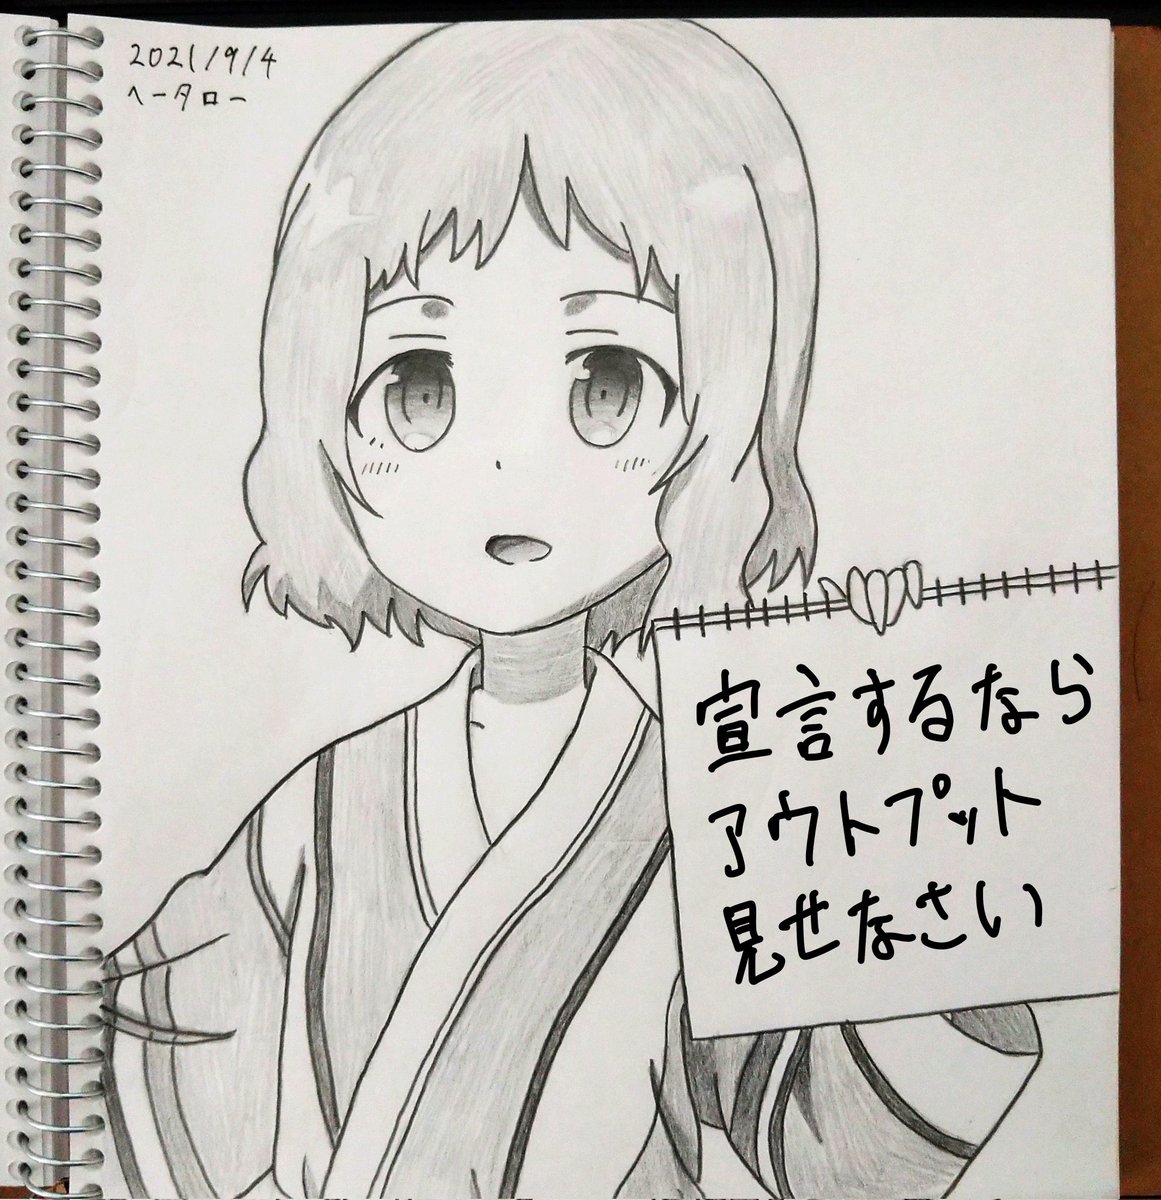 2021/9/4
ヘータロー
宣言するなら
アウトプット
見せなさい